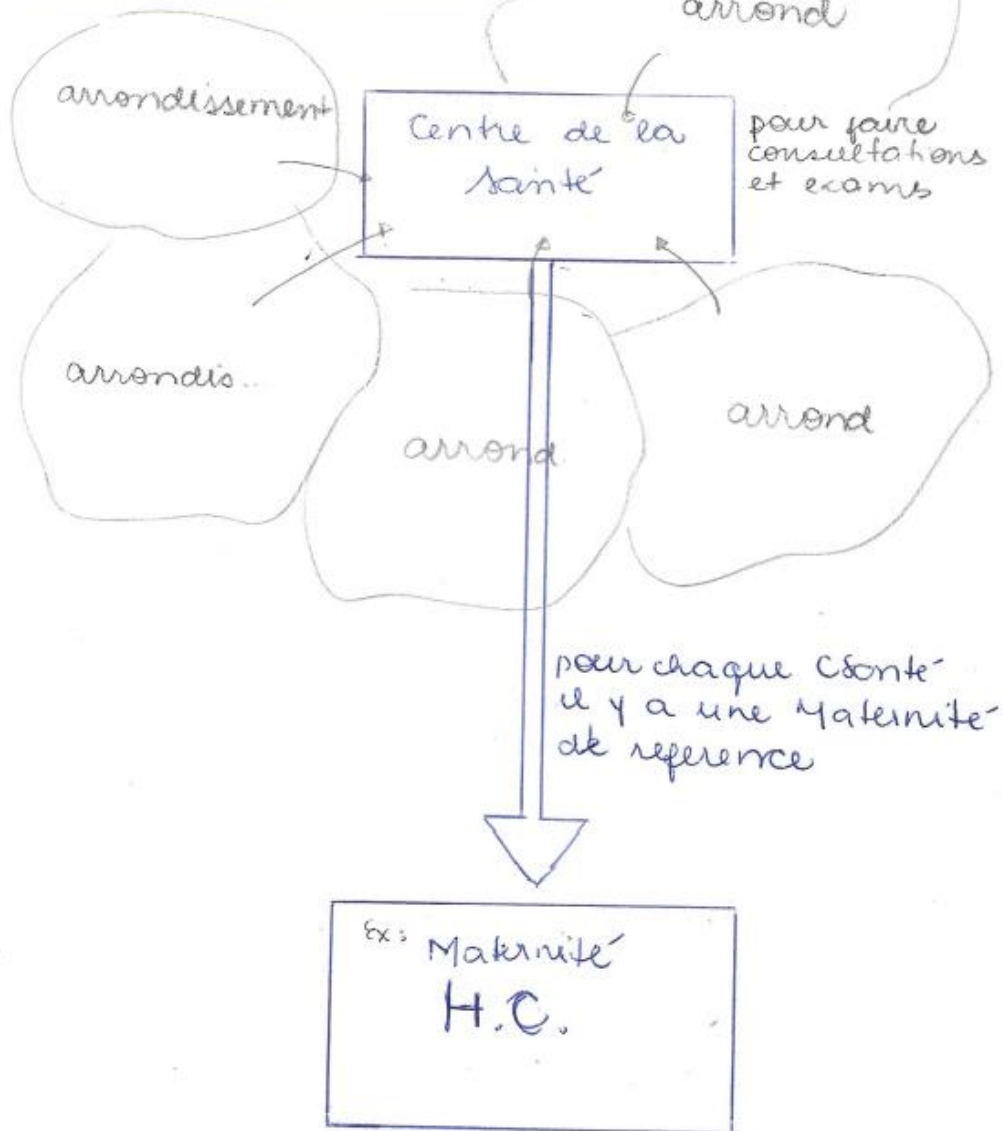 arrond
arrondissement
Centre de la
santé
pour faire
consultations
et exams
arrondis...
arrond
arrond
pour chaque CSanté
il y a une Maternité
de reference
Ex: Maternité
H.C.